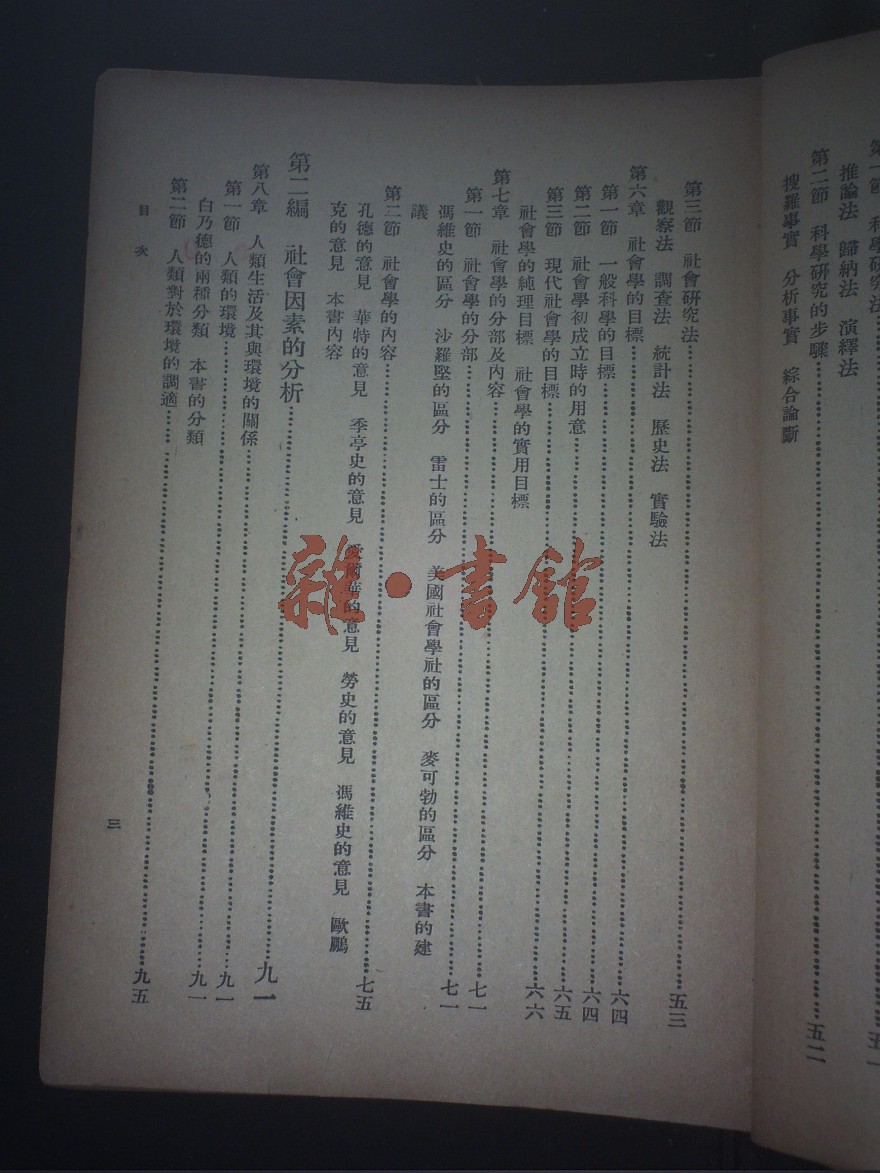 推論法 歸納法 演繹法
第二節 科學研究的步驟……五二
搜羅事實 分析事實 綜合論斷
第三節 社會研究法……五三
觀察法 調查法 統計法 歷史法 實驗法
第六章 社會學的目標……六四
第一節 一般科學的目標……六四
第二節 社會學初成立時的用意……六五
第三節 現代社會學的目標……六六
社會學的純理目標 社會學的實用目標
第七章 社會學的分部及內容……七一
第一節 社會學的分部……七一
馮維史的區分 沙羅堅的區分 雷士的區分 美國社會學社的區分 麥可勃的區分 本書的建
議
第二節 社會學的內容……七五
孔德的意見 華特的意見 季亭史的意見 愛爾華的意見 勞史的意見 馮維史的意見 歐鵬
克的意見 本書內容
第二編 社會因素的分析……九一
第八章 人類生活及其與環境的關係……九一
第一節 人類的環境……九一
白乃德的兩種分類 本書的分類
第二節 人類對於環境的調適……九五
目 次
三
雜·書館